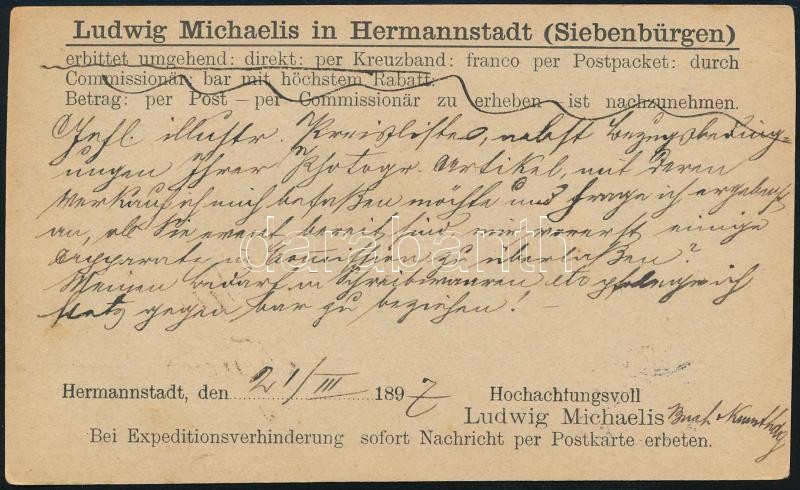 Ludwig Michaelis in Hermannstadt (Siebenbürgen)
erbittet umgehend: direkt: per Kreuzband: franco per Postpacket: durch
Commissionär: bar mit höchstem Rabatt:
Betrag: per Post — per Commissionär zu erheben — ist nachzunehmen.
Gefl. illustr. Preisliste, nebst Bezugsbeding-
ungen Ihrer Photogr. Artikel, mit deren
Verkauf ich mich befaßen möchte und frage ich ergebenst
an, ob Sie event. bereit sind mir vorerst einige
Apparate in Comission zu überlaßen?
Meinen Bedarf in Schreibwaaren etc pflege ich
stets gegen bar zu beziehen!
darabanth
Hermannstadt, den 21/III 1897
Hochachtungsvoll
Ludwig Michaelis Buch
Bei Expeditionsverhinderung sofort Nachricht per Postkarte erbeten.